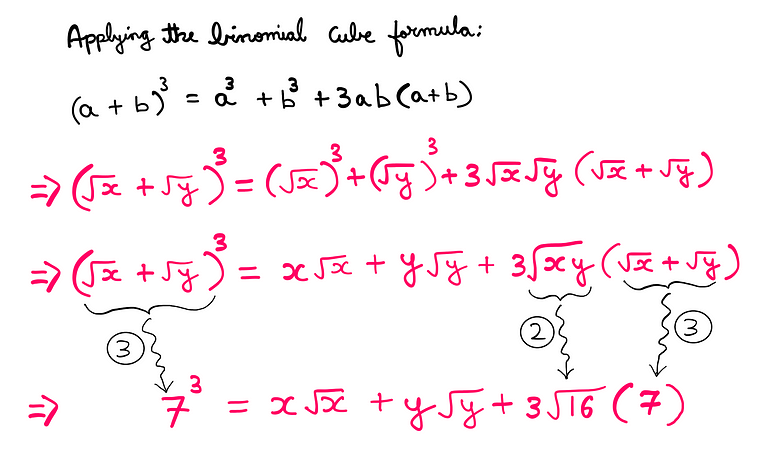 Applying the binomial cube formula:
(a + b)³ = a³ + b³ + 3ab(a+b)
⇒ (√x + √y)³ = (√x)³ + (√y)³ + 3√x√y (√x + √y)
⇒ (√x + √y)³ = x√x + y√y + 3√xy (√x + √y)
③ ② ③
⇒ 7³ = x√x + y√y + 3√16 (7)